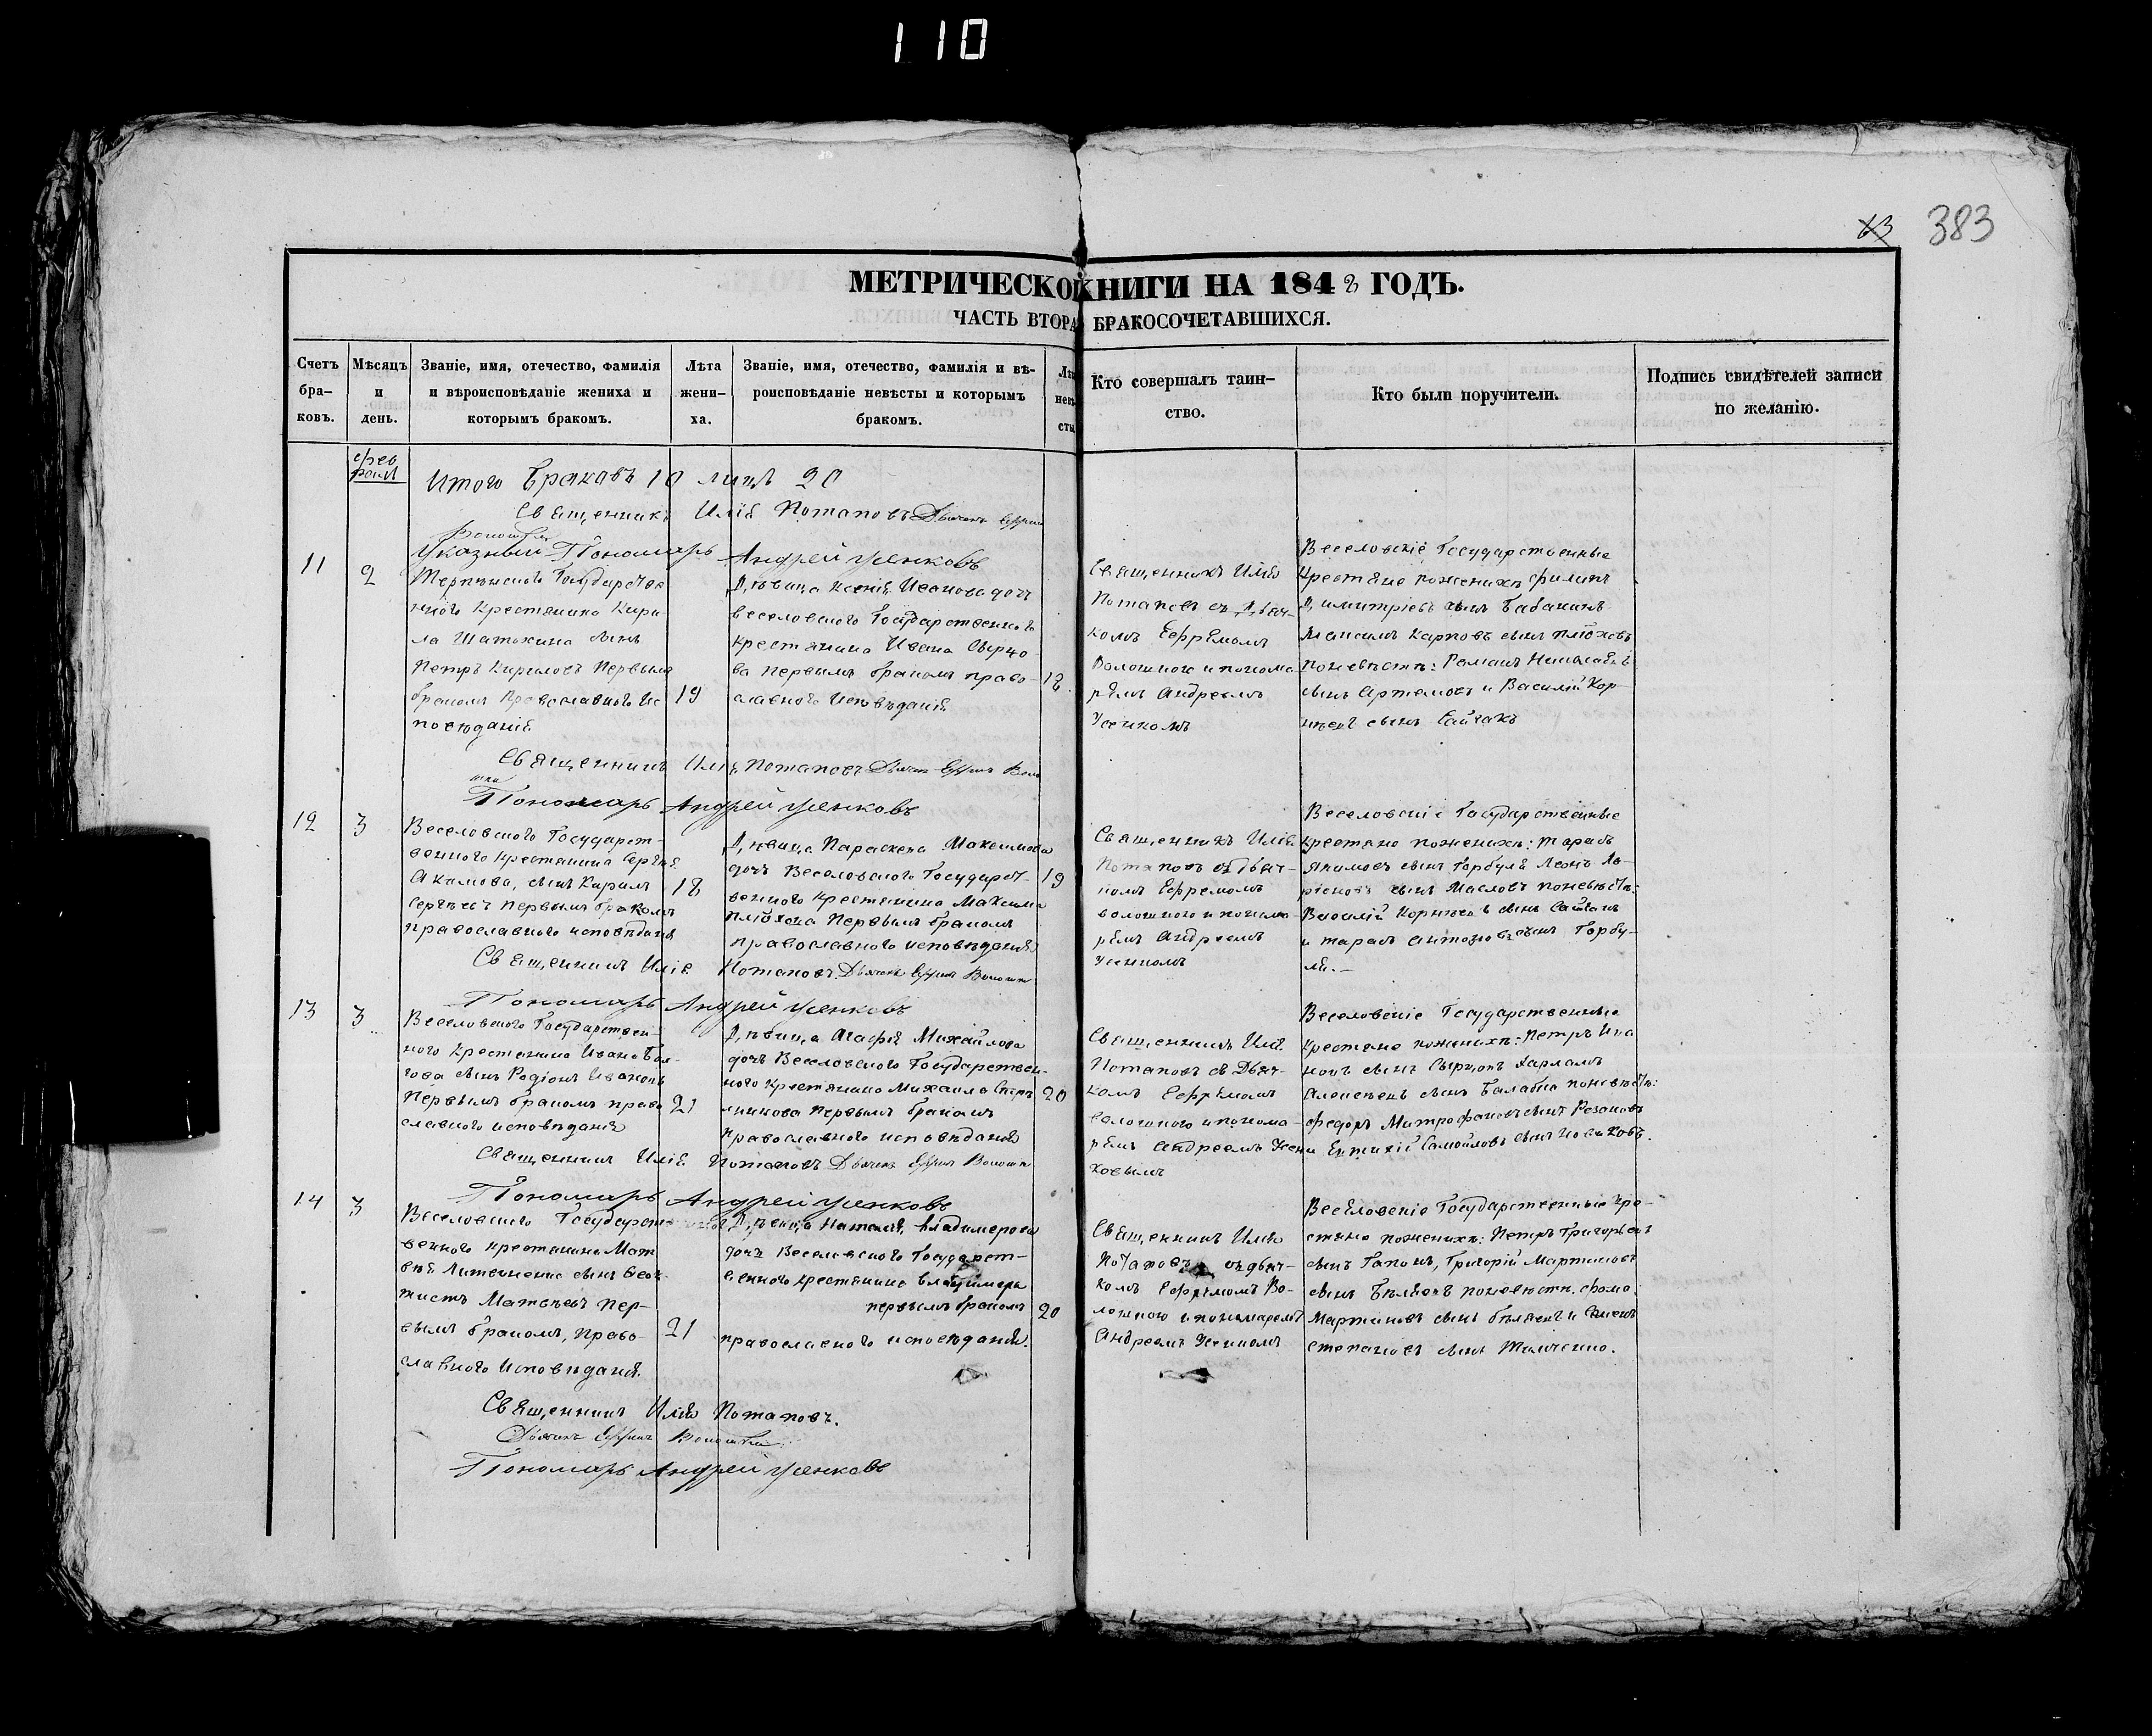 110
63 383
МЕТРИЧЕСКО КНИГИ НА 1842 ГОДЪ.
ЧАСТЬ ВТОРА БРАКОСОЧЕТАВШИХСЯ.
Счетъ бра-ковъ.
Мѣсяцъ и день.
Званіе, имя, отечество, фамилія
и вѣроисповѣданіе жениха и
которымъ бракомъ.
Лѣта жени-ха.
Званіе, имя, отечество, фамилія и вѣ-
роисповѣданіе невѣсты и которымъ
бракомъ.
Кто совершалъ таин-
ство.
Кто были поручители.
Подпись свидѣтелей записи
по желанію.
Итого Браковъ 10 лицъ 20
Священникъ Илія Потаповъ Дьячекъ
Указный Пономарь Андрей Усенковъ
11
2
Государствен
ного Крестянина Кири-
ла Шатохина сынъ
Петръ Кириловъ Первымъ
бракомъ Православного Ис
поведанія
19
Дѣвица Ксенія Иванова доч
веселовского Государственного
крестянина Ивана Сырцо-
ва первымъ бракомъ право-
славного исповѣданія
18
Священникъ Илія
Потаповъ съ Дьяч-
комъ Ефремомъ
Волошиною и понома
рѣмъ Андреемъ
Усенкомъ
Веселовскіе Государственные
Крестяне пожених Филипъ
Димитріевъ сынъ Бабакинъ
Максимъ Карповъ сынъ Плюховъ
поневѣстѣ: Романъ
сынъ Артемовъ и Василій Кор-
нѣевъ сынъ Сайчакъ
Священникъ Илія Потаповъ Дьячекъ
Пономарь Андрей Усенковъ
12
3
Веселовского Государст-
венного крестянина Сергѣя
Акимова, сынъ Кирилъ
Сергѣевъ первымъ бракомъ
православного исповѣданія
18
Дѣвица Параскева Максимова
дочъ Веселовского Государст-
венного крестянина Максима
Плюхова Первымъ бракомъ
православного исповѣданія
19
Священникъ Илія
Потаповъ съ дьяч-
комъ Ефремомъ
волошиною и понома
рѣмъ Андреемъ
Усенкомъ
Веселовскіе Государственные
крестяне пожених: Тарасъ
Якимовъ сынъ Горбуля Леонъ Ла-
ріоновъ сынъ Масловъ поневѣстѣ:
Василій Корнѣевъ сынъ Сайчакъ
и Тарасъ Антоновъ сынъ Горбу-
ля.
Священникъ Илія Потаповъ Дьячекъ
Пономарь Андрей Усенковъ
13
3
Веселовского Государствен-
ного Крестянина Ивана
сынъ Родіонъ Ивановъ
Первымъ бракомъ право
славного исповѣданія
21
Дѣвица Агафія Михайлова
дочъ Веселовского Государствен-
ного крестянина Михаила
Первымъ бракомъ
Православного исповѣданія
20
Священникъ Илія
Потаповъ съ Дьяч-
комъ Ефремомъ
Волошиною и понома-
рѣмъ Андреемъ Усен
ковымъ
Веселовскіе Государственные
крестяне пожених: Петръ Ива
новъ сынъ Сырцовъ Харламъ
Алексѣевъ сынъ Балабка поневѣстѣ:
Федоръ Митрофановъ сынъ
Евтихій Самойловъ сынъ Новиковъ.
Священникъ Илія Потаповъ Дьячекъ
Пономарь Андрей Усенковъ
14
3
Веселовского Государст
венного крестянина Мат
вѣя Литвиненко сынъ Феок-
тистъ Матвѣевъ пер-
вымъ бракомъ, право-
славного Исповѣданія.
21
Дѣвица Наталія, владимерова
дочъ Веселовского Государст-
венного крестянина владимера
первымъ бракомъ
православного исповѣданія.
20
Священникъ Илія
Потаповъ съ дьяч-
комъ Ефремомъ Во-
лошиною и пономаремъ
Андреемъ Усенкомъ
Веселовскіе Государственные кре-
стяне пожених: Петръ Григорьевъ
сынъ Гапонъ, Григорій Мартиновъ
сынъ Бѣляевъ поневѣстѣ, Фома
Мартиновъ сынъ бѣляевъ и Семенъ
степановъ сынъ
Священникъ Илія Потаповъ.
Дьячекъ
Пономарь Андрей Усенковъ